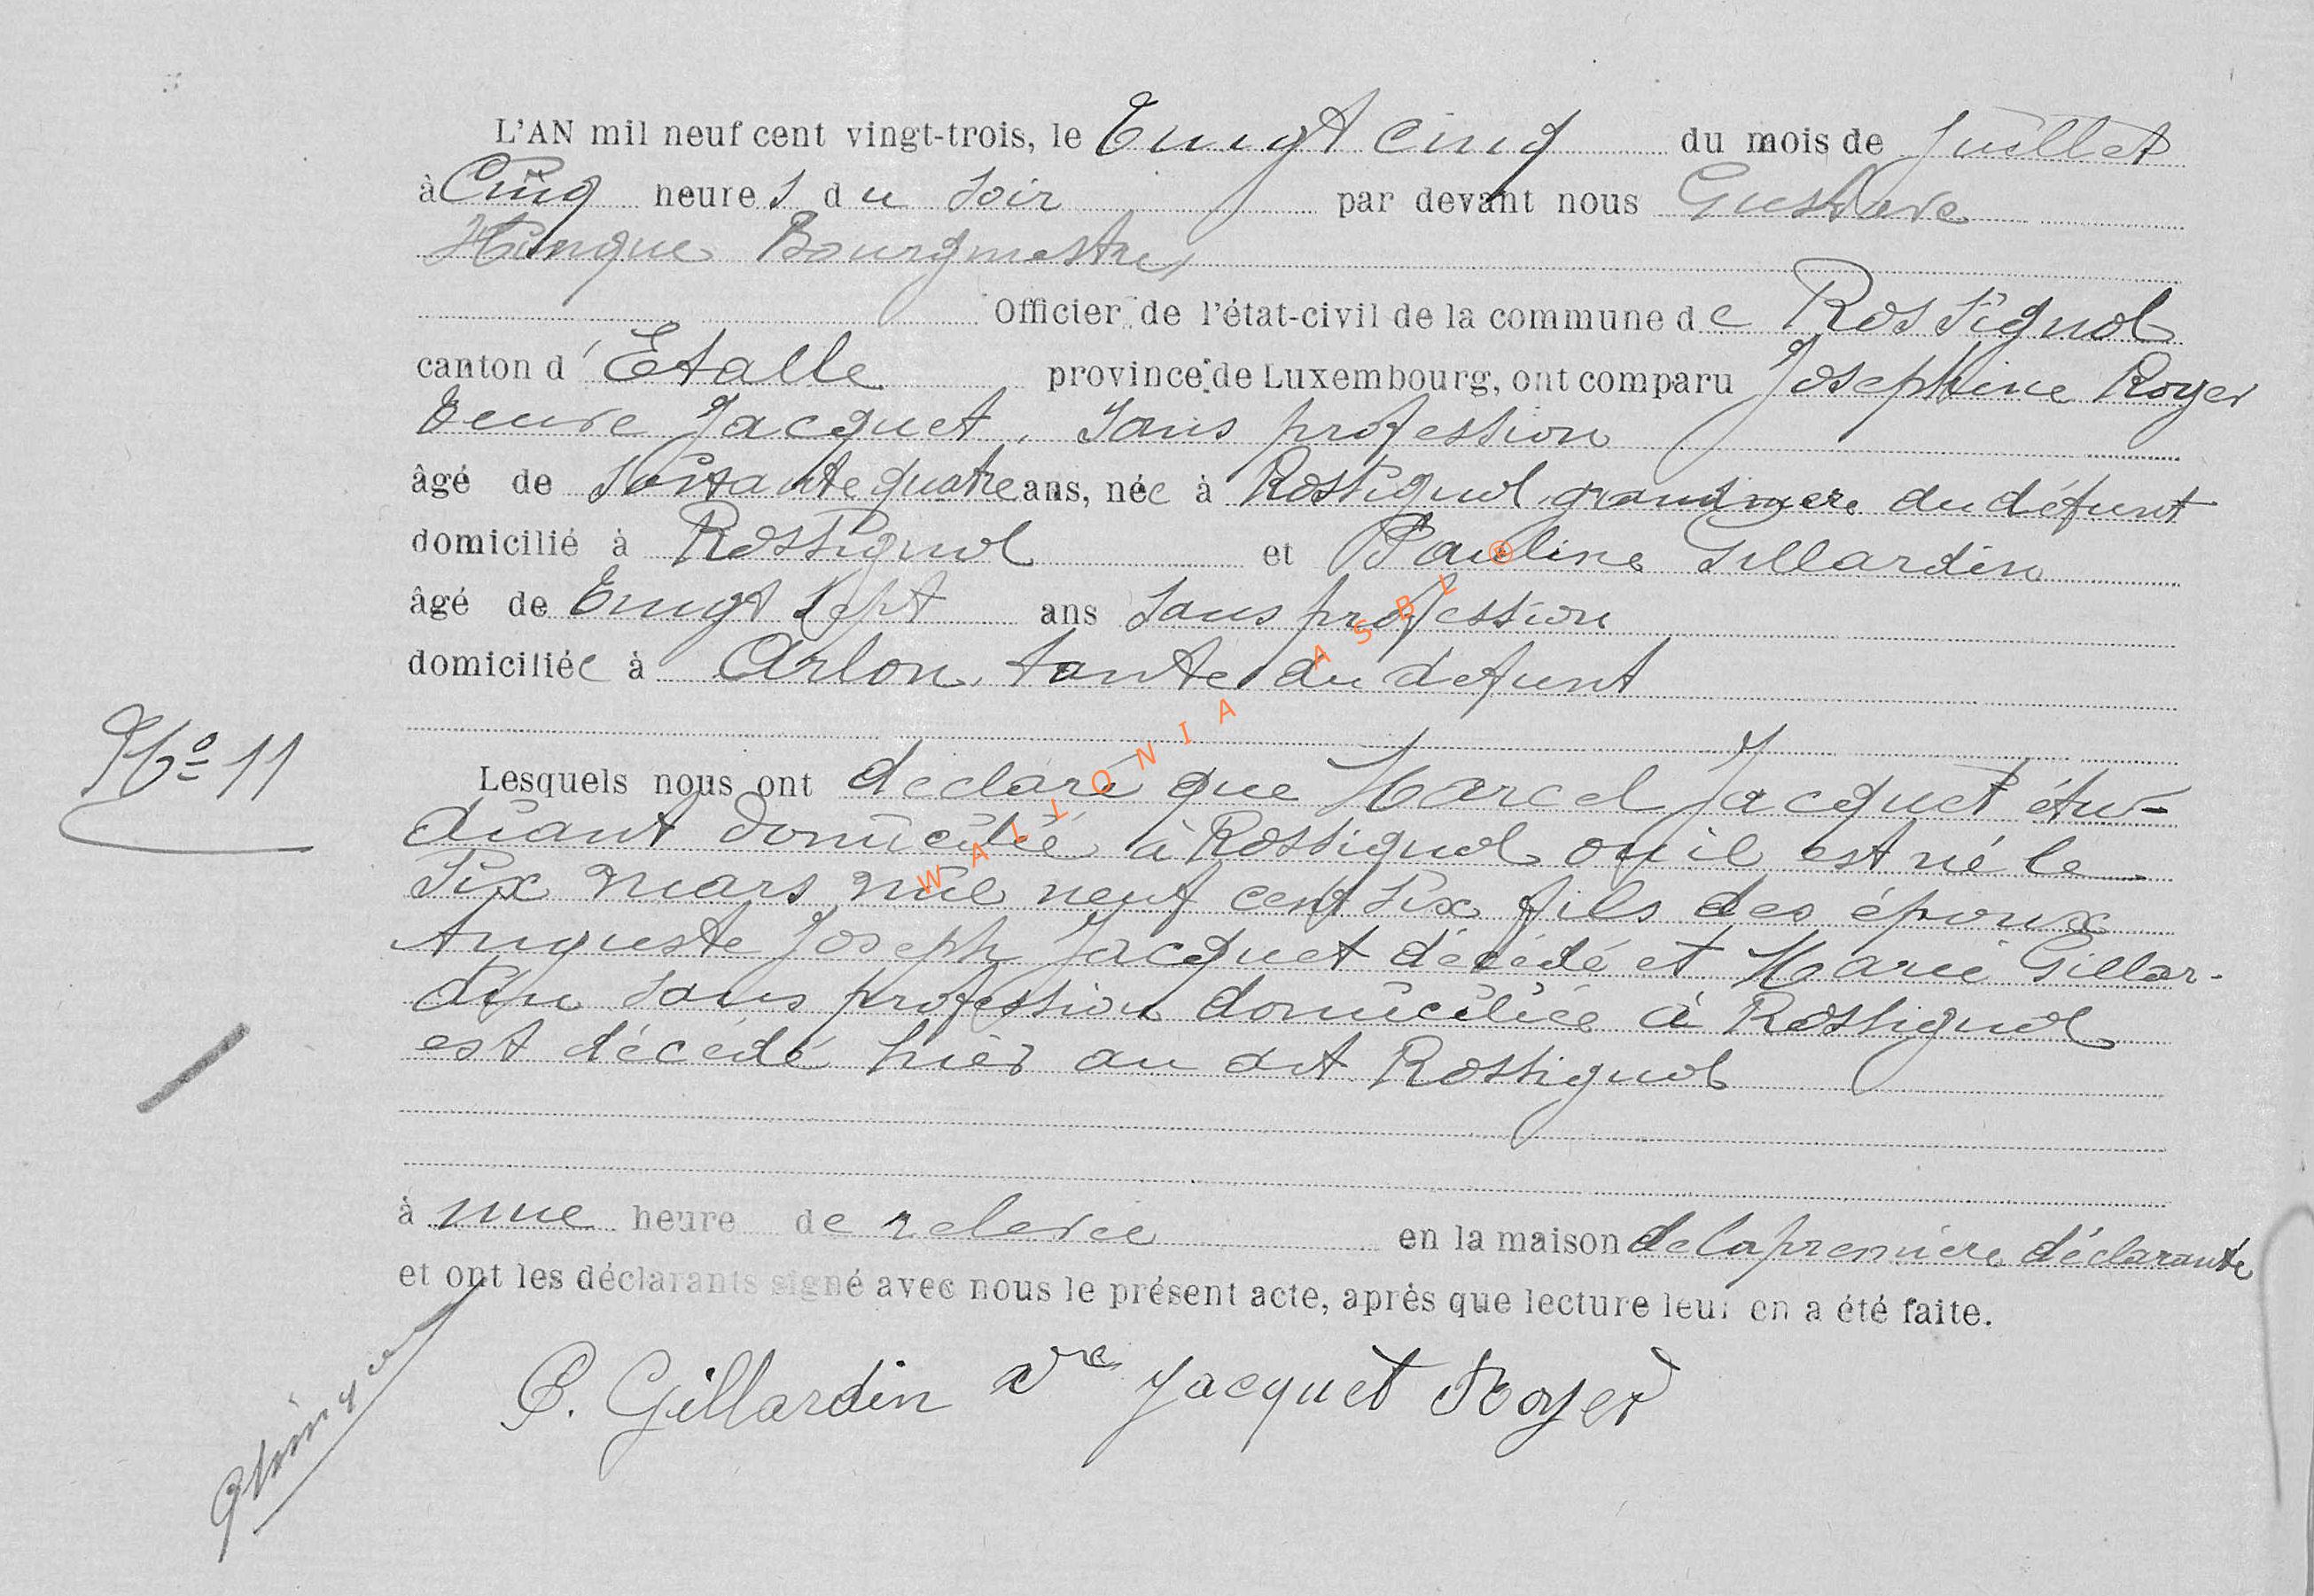 L'AN mil neuf cent vingt-trois, le Vingt cinq du mois de Juillet
à Cinq heures du soir par devant nous Gustave
Hinque Bourgmestre
Officier de l'état-civil de la commune de Rossignol
canton d'Etalle province de Luxembourg, ont comparu Josephine Royer
Veuve Jacquet, sans profession
âgé de soixante quatre ans, née à Rossignol, grandmere du défunt
domicilié à Rossignol et Pauline Gillardin
âgé de Vingt sept ans sans profession
domiciliée à Arlon, tante du defunt
No 11
Lesquels nous ont declaré que Marcel Jacquet étu-
diant domicilié à Rossignol ou il est né le
six mars mil neuf cent six fils des époux
Auguste Joseph Jacquet décédé et Marie Gillar-
din sans profession domiciliée à Rossignol
est décédé hier au dit Rossignol
à une heure de relevée en la maison de la premiere déclarante
et ont les déclarants signé avec nous le présent acte, après que lecture leur en a été faite.
P. Gillardin Vve Jacquet Royer
GHinque
WALLONIA ASBL ®